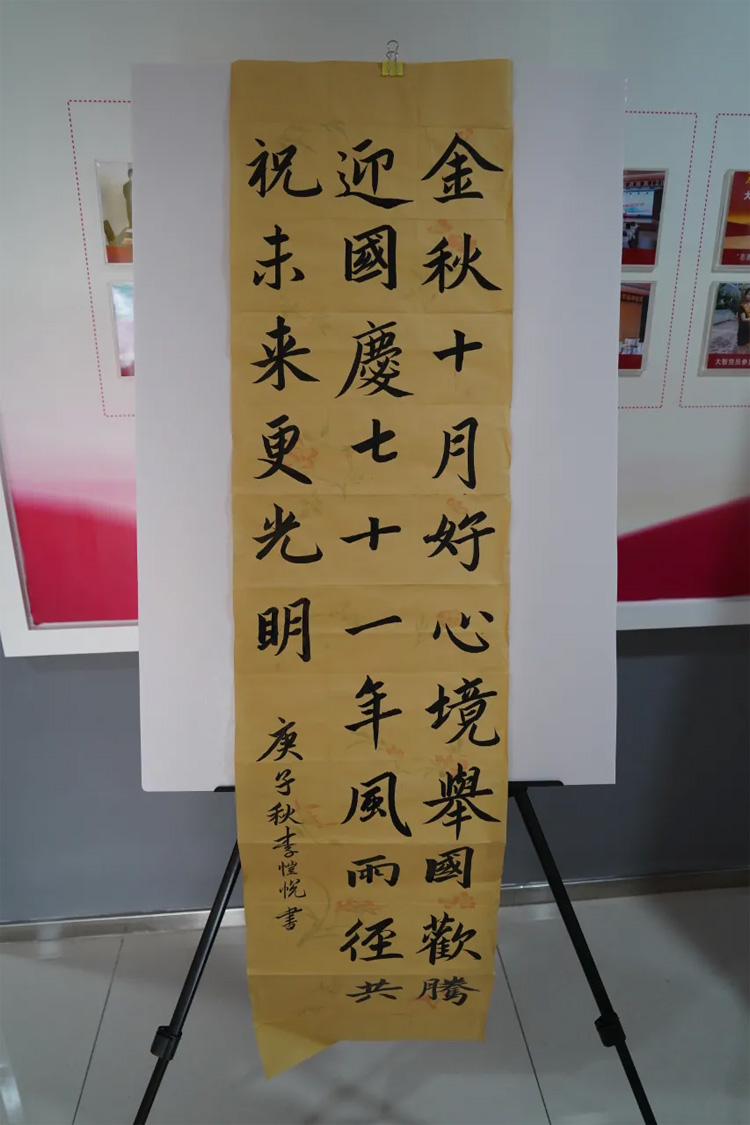 金秋十月好心境舉國歡騰
迎國慶七十一年風雨徑共
祝未来更光明
庚子秋李愷悅書